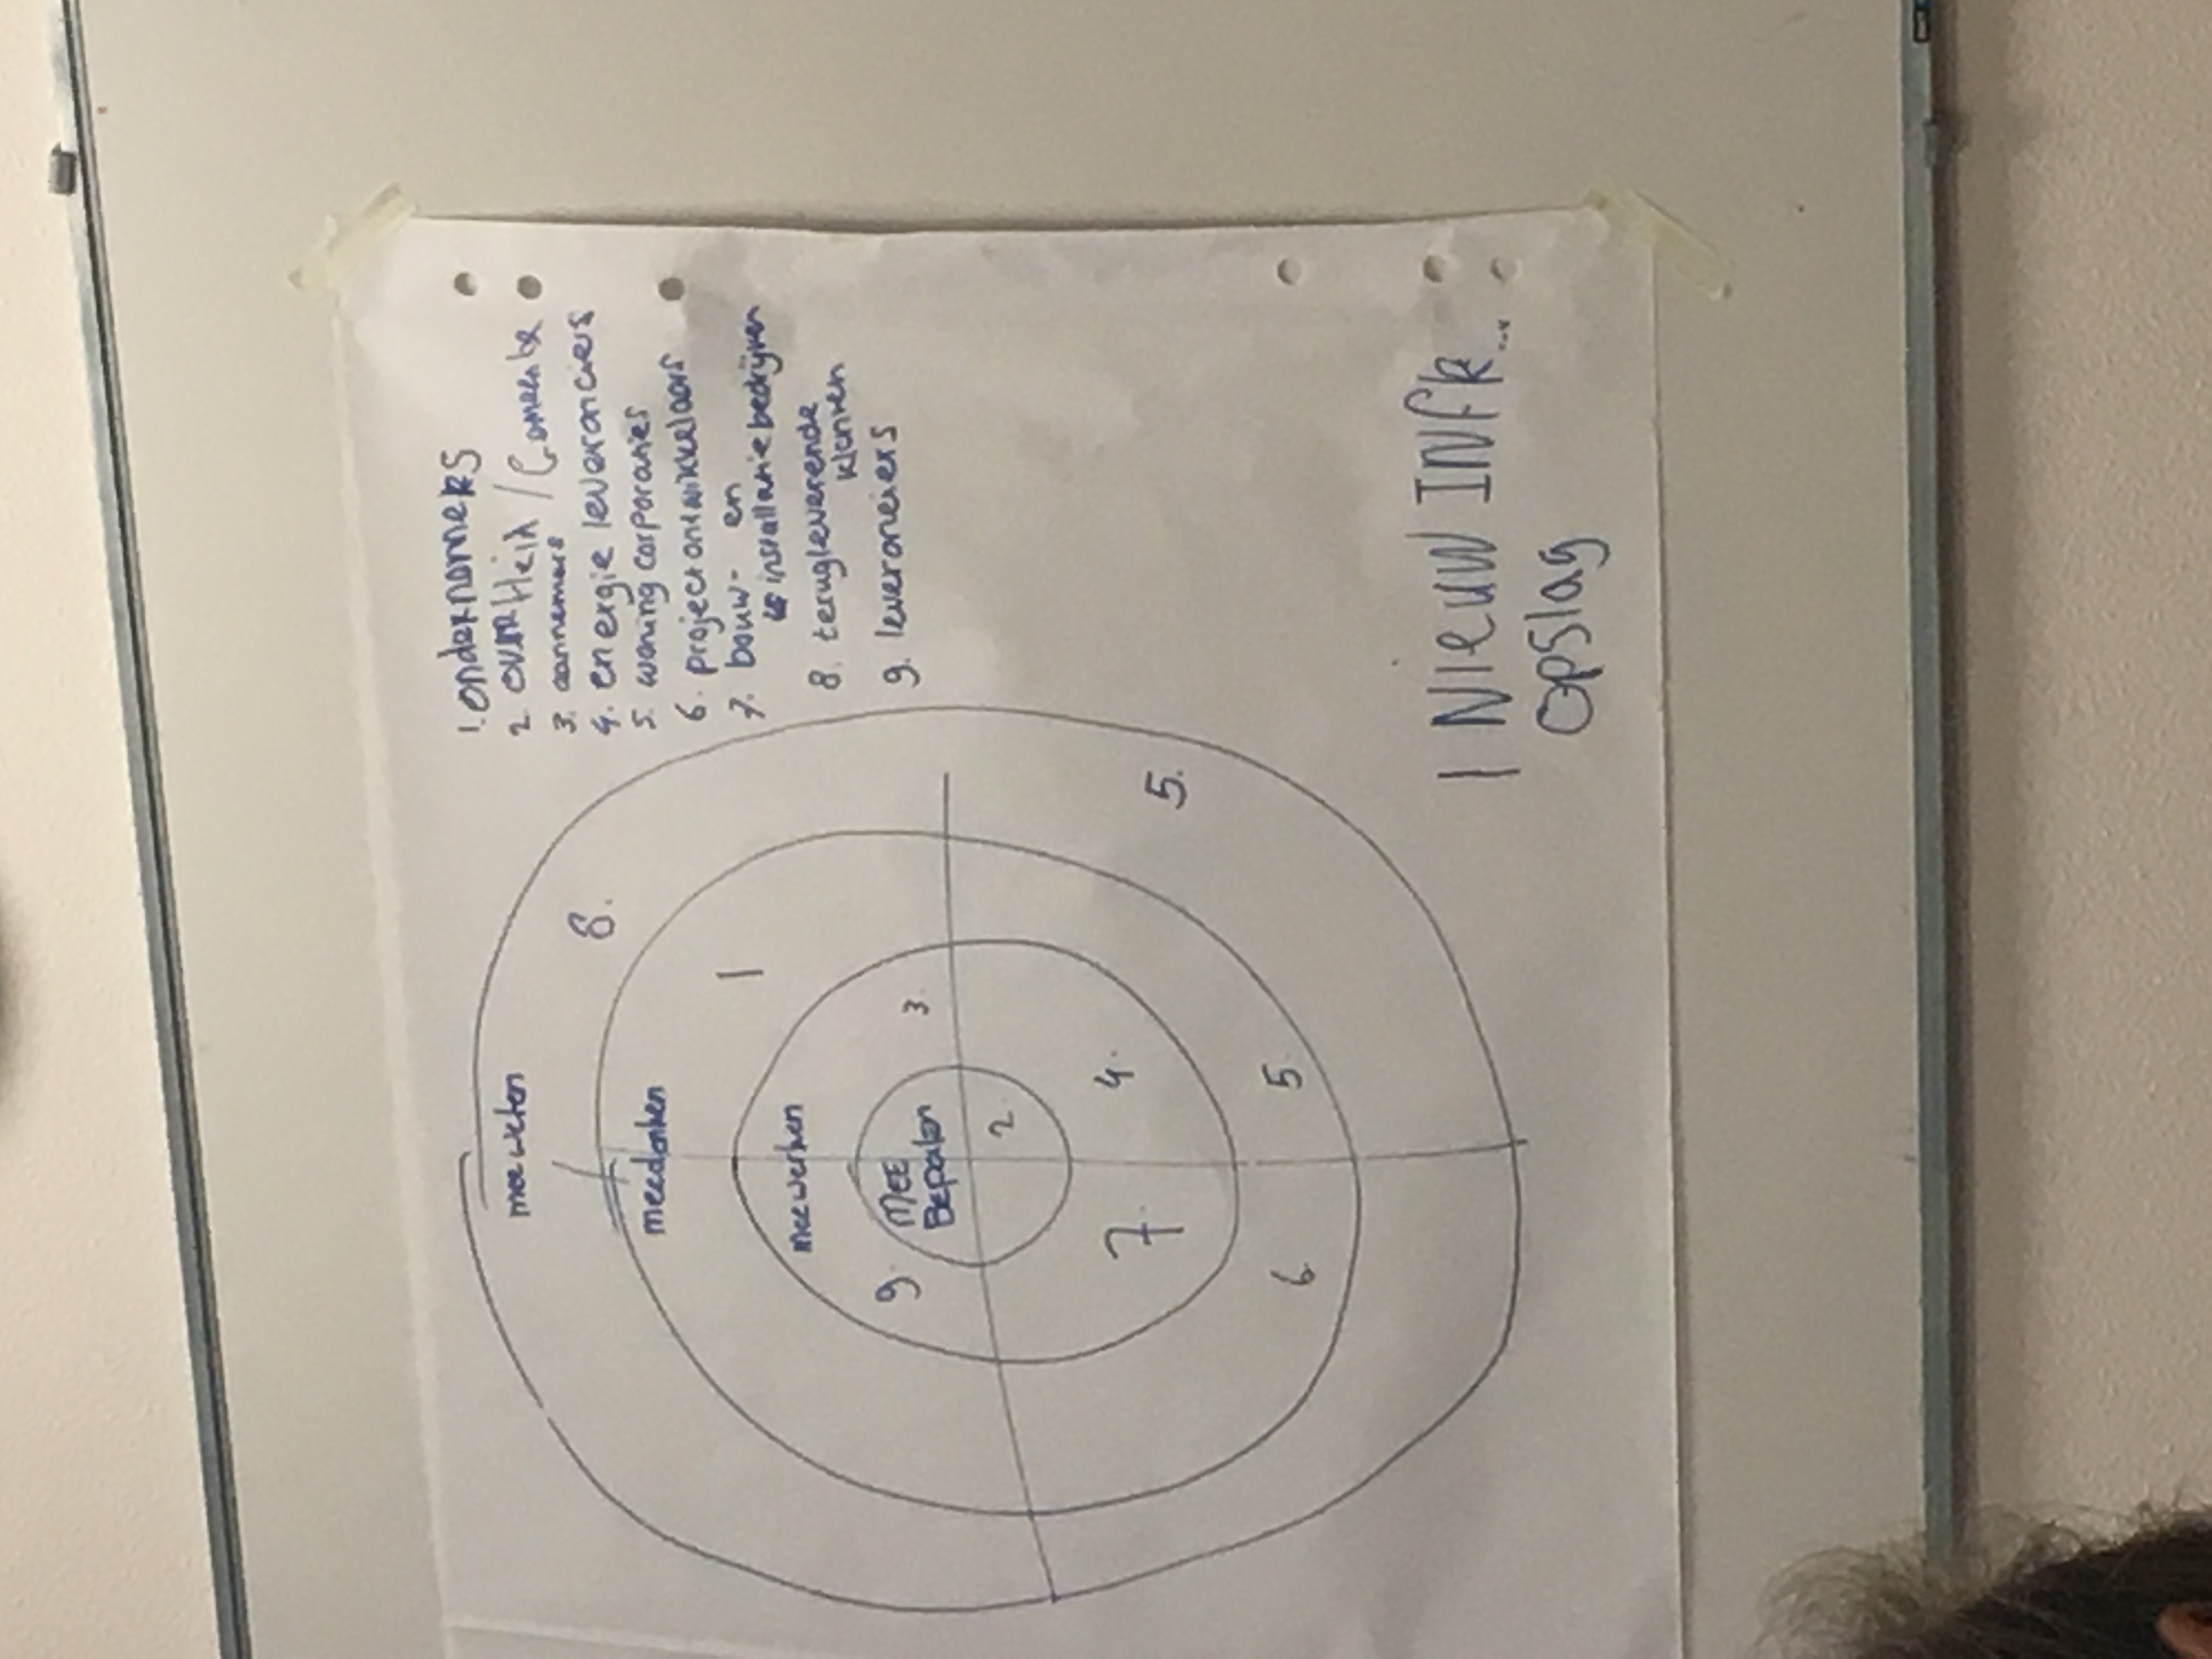 mee weten
8.
meedenken
1
meewerken
9.
MEE
Bepalen
3.
2.
7.
4.
5.
6
5.
1. ondernemers
2 overHeid / Gemeente
3. aannemers
4. energie leveranciers
5. woning corporaties
6. projectontwikkelaars
7. bouw- en
installatiebedrijven
8. terugleverende
klanten
9. leveranciers
1 Nieuw INfR...
opslag